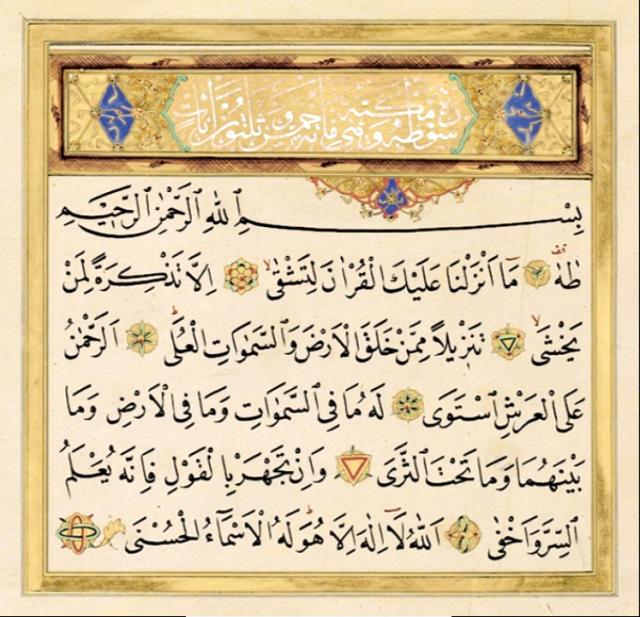 سورة طه وهي مائة وخمس وثلثون آيات مكية
بِسْمِ اللهِ الرَّحْمٰنِ الرَّحِيمِ
طٰهٰ مَا اَنْزَلْنَا عَلَيْكَ الْقُرْاٰنَ لِتَشْقٰىۙ اِلَّا تَذْكِرَةً لِمَنْ
يَخْشٰىۙ تَنْزِيلًا مِمَّنْ خَلَقَ الْاَرْضَ وَالسَّمٰوَاتِ الْعُلٰىۜ اَلرَّحْمٰنُ
عَلَى الْعَرْشِ اسْتَوٰى لَهُ مَا فِي السَّمٰوَاتِ وَمَا فِي الْاَرْضِ وَمَا
بَيْنَهُمَا وَمَا تَحْتَ الثَّرٰى وَاِنْ تَجْهَرْ بِالْقَوْلِ فَاِنَّهُ يَعْلَمُ
السِّرَّ وَاَخْفٰى اَللهُ لَا اِلٰهَ اِلَّا هُوَ لَهُ الْاَسْمَاءُ الْحُسْنٰى